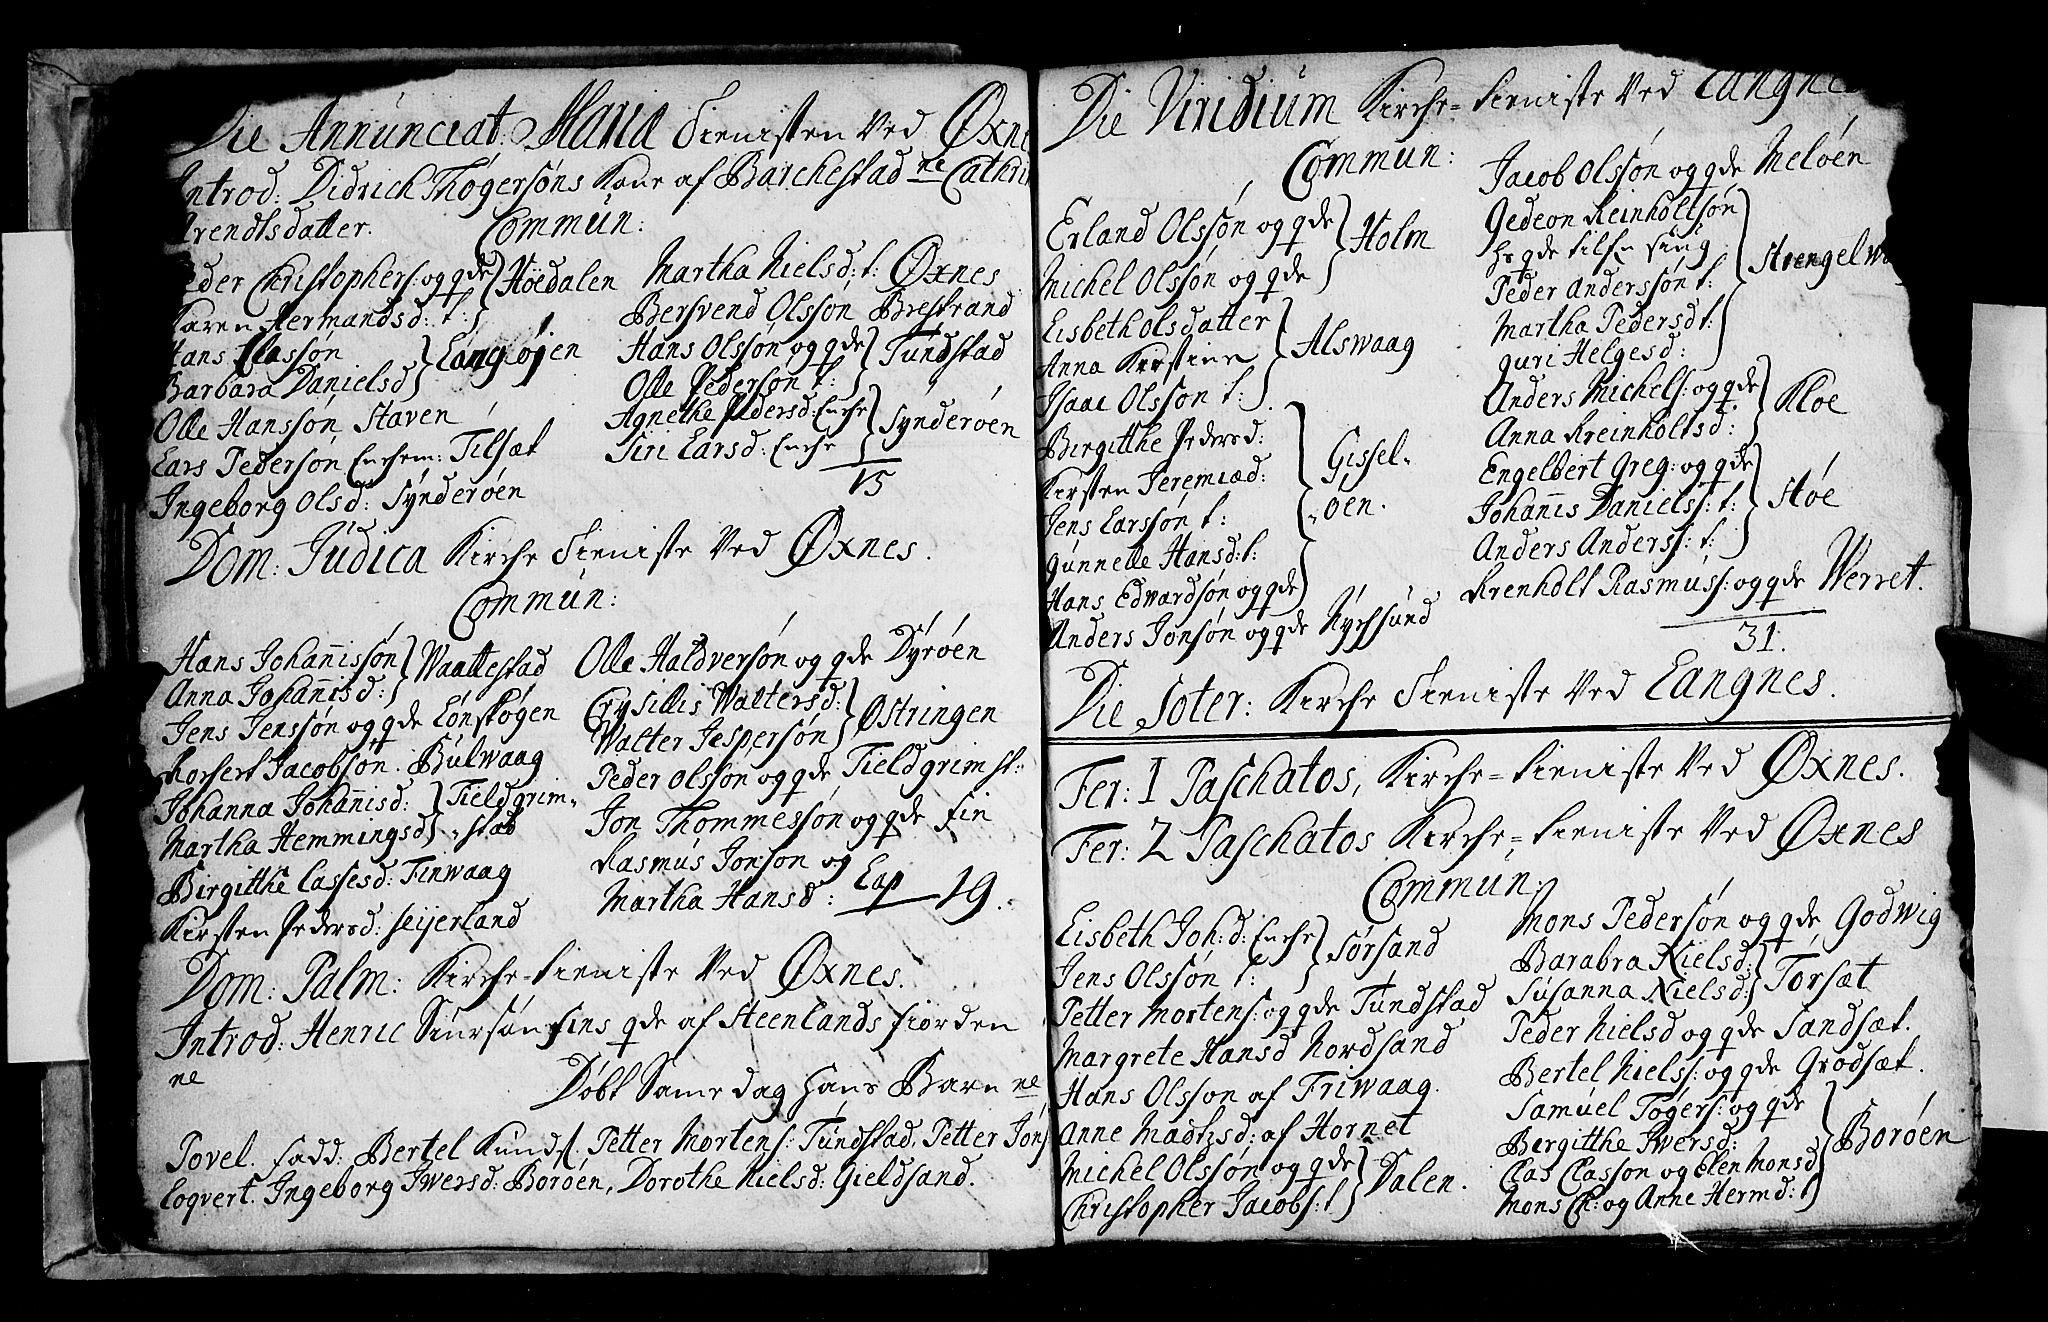 Die Annunciat: Mariæ Tienisten Ved Øxne
Introd: Didrich Thøgersøns Kone af Barchestad ne Cathri
Arendtsdatter.
Commun:
Peder Christophers: og qde } Høedalen
Karen Hermandsd: t:
Hans Classøn } Langøjen
Barbara Danielsd
Olle Hanssøn Staven
Lars Pedersøn Enchem: Tilsæt
Ingeborg Olsd: Sÿnderøen
Martha Nielsd: t: Øxnes
Bersvend Olssøn Brestrand
Hans Olssøn og qde } Tundstad
Olle Pedersøn t:
Agnethe Pedersd: Enche } Sÿnderøen
Siri Larsd: Enche
15
Dom: Judica Kirche Tieniste Ved Øxnes.
Commun:
Hans Johannissøn } Waattestad
Anna Johannisd:
Jens Jenssøn og qde Lønskogen
Jacobsøn. Bulwaag
Johanna Johannisd: } Fieldgrim-
Martha Hemmingsd } -stad
Birgitthe Lassesd: Finwaag
Kirsten Pedersd: Seijerland
Olle Haldversøn og qde Dÿrøen
Crysillis Waltersd: } Ostringen
Walter Jespersøn
Peder Olssøn og qde Fieldgrimst:
Jon Thommessøn og qde Fin
Rasmus Jonson og
Martha Hansd: Lap 19.
Dom: Palm: Kirche-tieniste Ved Øxnes.
Introd: Henric Siursøn Fins qde af Steenlands fiorden
ne
Døbt Same dag Hans Barn ne
Povel. fadd. Bertel Kunds. Petter Mortens: Tundstad, Petter Jons
Loqvert. Ingeborg Iwersd: Borøen, Dorothe Nielsd: Gieldsand.
Die Viridium Kirche-tieniste Ved Langnes
Commun:
Erland Olssøn og qde } Holm
Michel Olssøn og qde
Lisbeth Olsdatter } Alswaag
Anna Kirstine
Isaac Olsson t:
Birgitthe Pedersd: } Gissel-
Kirsten Jeremiæd:
Jens Larssøn t: -øen.
Gunnelle Hansd: t:
Hans Edwardsøn og qde
Anders Jonsøn og qde Nÿchsund
Jacob Olssøn og qde Meløen
Gedeon Reinholtsøn } Strengelwa
Hs qde
Peder Anderssøn t:
Martha Pedersd t:
guri Helgesd:
Anders Michels: og qde } Kloe
Anna Kreinholtsd:
Engelbert Greg: og qde } Støe
Johannis Daniels: t:
Anders Anders: t:
Krenholt Rasmus: og qde Werret.
31.
Die Soter: Kirche Tieniste Ved Langnes.
Fer: 1 Paschatos, Kirche-tieniste Ved Øxnes.
Fer: 2 Paschatos Kirche-tieniste Ved Øxnes
Commun:
Lisbeth Joh: d: Enche } Sørsand
Jens Olssøn t:
Petter Mortens: og qde Tundstad
Margrete Hansd Nordsand
Hans Olsson af Friwaag.
Anne Madtzsd: af Hornet
Michel Olssøn og qde } Dalen.
Christopher Jacobs: t
Mons Pedersøn og qde Godwig
Barabra Nielsd: } Torsæt
Susanna Nielsd:
Peder Nielsd og qde Sandsæt.
Bertel Niels: og qde Grodsæt.
Samuel Togers: og qde } Borøen
Birgitthe Iwersd:
Clas Classon og Elen Monsd
Mons Ch: og Anne Hermd: t